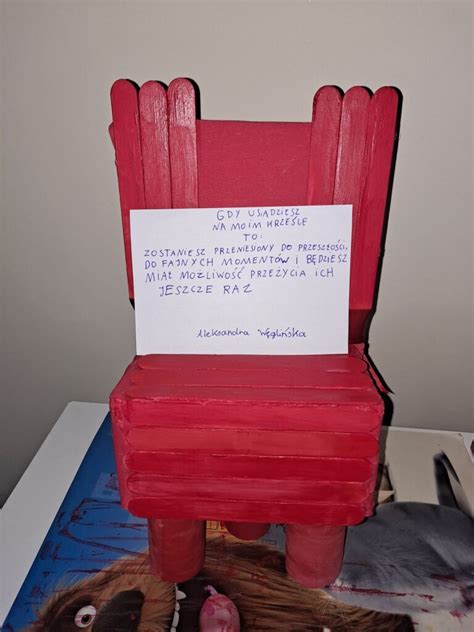 GDY USIĄDZIESZ
NA MOIM KRZEŚLE
TO:
ZOSTANIESZ PRZENIESIONY DO PRZESZŁOŚCI,
DO FAJNYCH MOMENTÓW I BĘDZIESZ
MIAŁ MOŻLIWOŚĆ PRZEŻYCIA ICH
JESZCZE RAZ
Aleksandra Węglińska